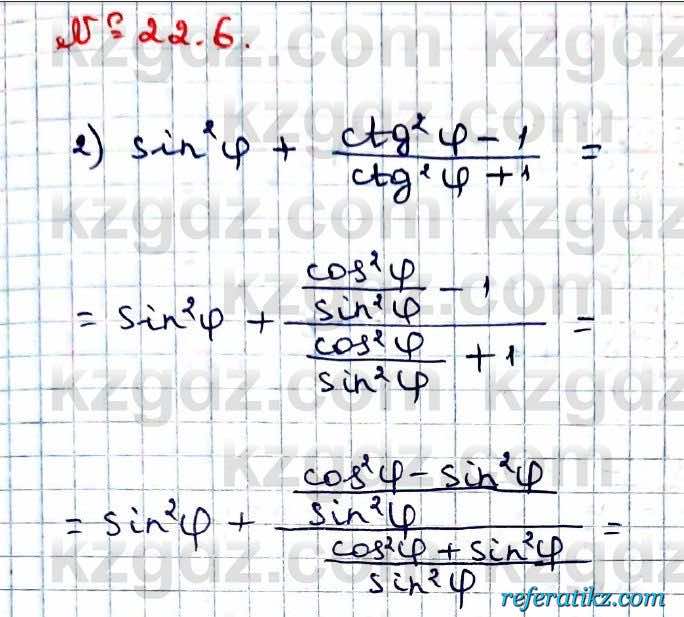 № 22.6.
2) sin²φ + (ctg²φ − 1)/(ctg²φ + 1) =
= sin²φ + (cos²φ/sin²φ − 1)/(cos²φ/sin²φ + 1) =
= sin²φ + ((cos²φ − sin²φ)/sin²φ)/((cos²φ + sin²φ)/sin²φ) =
kzgdz.com
referatikz.com